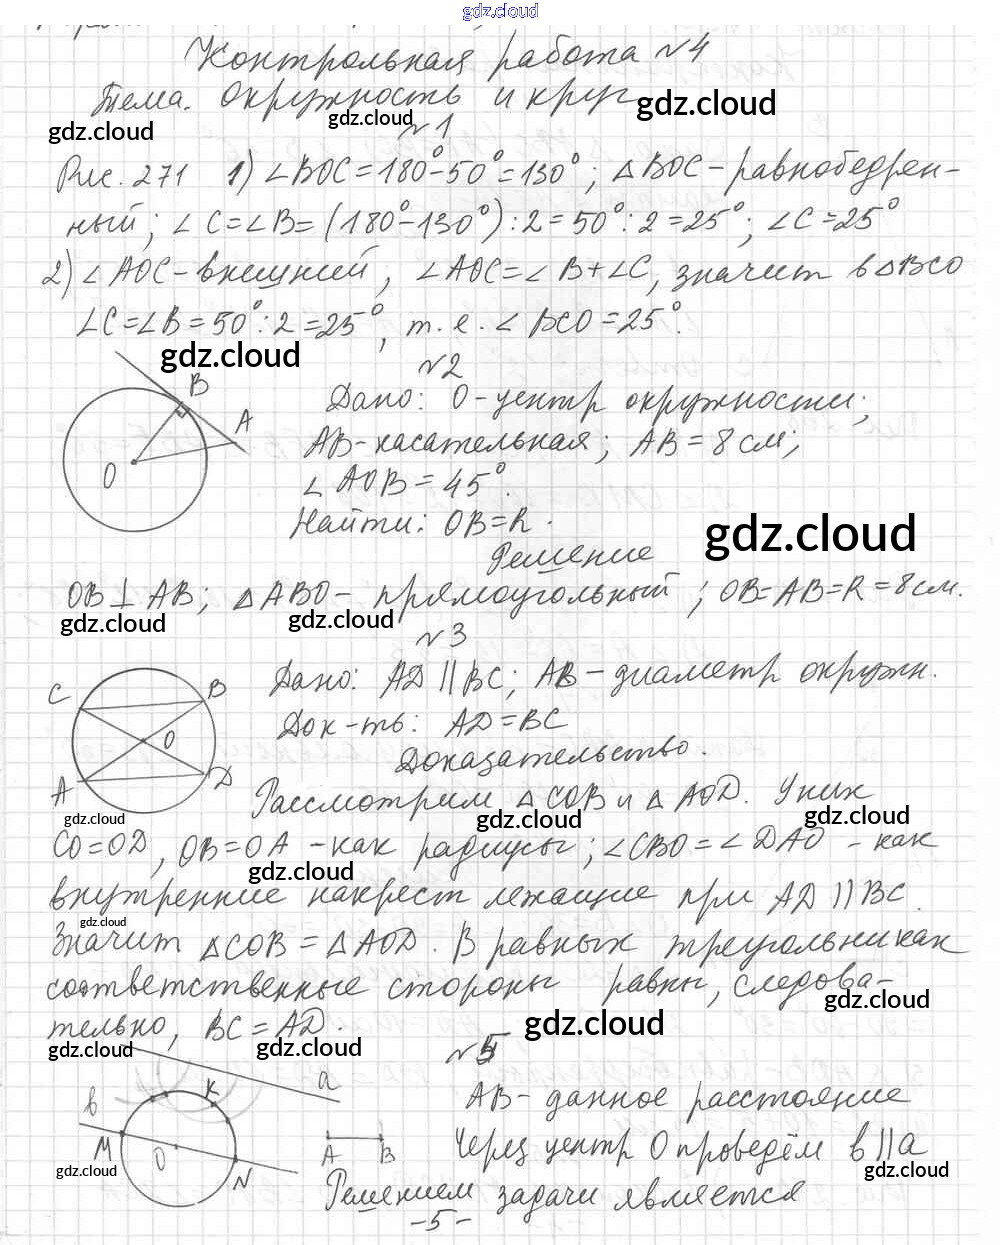 gdz.cloud
Контрольная работа №4
Тема. Окружность и круг
gdz.cloud gdz.cloud gdz.cloud
№1
Рис. 271 1) ∠BOC=180°-50°=130°; △BOC-равнобедрен-
ный; ∠C=∠B=(180°-130°):2=50°:2=25°; ∠C=25°
2) ∠AOC-внешний, ∠AOC=∠B+∠C, значит в △BCO
∠C=∠B=50°:2=25°, т.е. ∠BCO=25°.
gdz.cloud
№2
B
A
O
Дано: O-центр окружности;
AB-касательная; AB=8см;
∠AOB=45°.
Найти: OB=R.
gdz.cloud
Решение
OB⊥AB; △ABO- прямоугольный; OB=AB=R=8см.
gdz.cloud gdz.cloud
№3
C B
O
A D
Дано: AD||BC; AB-диаметр окружн.
Док-ть: AD=BC
Доказательство.
Рассмотрим △COB и △AOD. У них
gdz.cloud gdz.cloud gdz.cloud
CO=OD, OB=OA -как радиусы; ∠CBO=∠DAO -как
gdz.cloud
внутренние накрест лежащие при AD||BC.
gdz.cloud
Значит △COB=△AOD. В равных треугольниках
соответственные стороны равны, следова-
gdz.cloud
тельно, BC=AD.
gdz.cloud gdz.cloud gdz.cloud
№5
a
в K
M O N
A B
AB- данное расстояние
Через центр O проведём в||a
gdz.cloud gdz.cloud
Решением задачи является
-5-